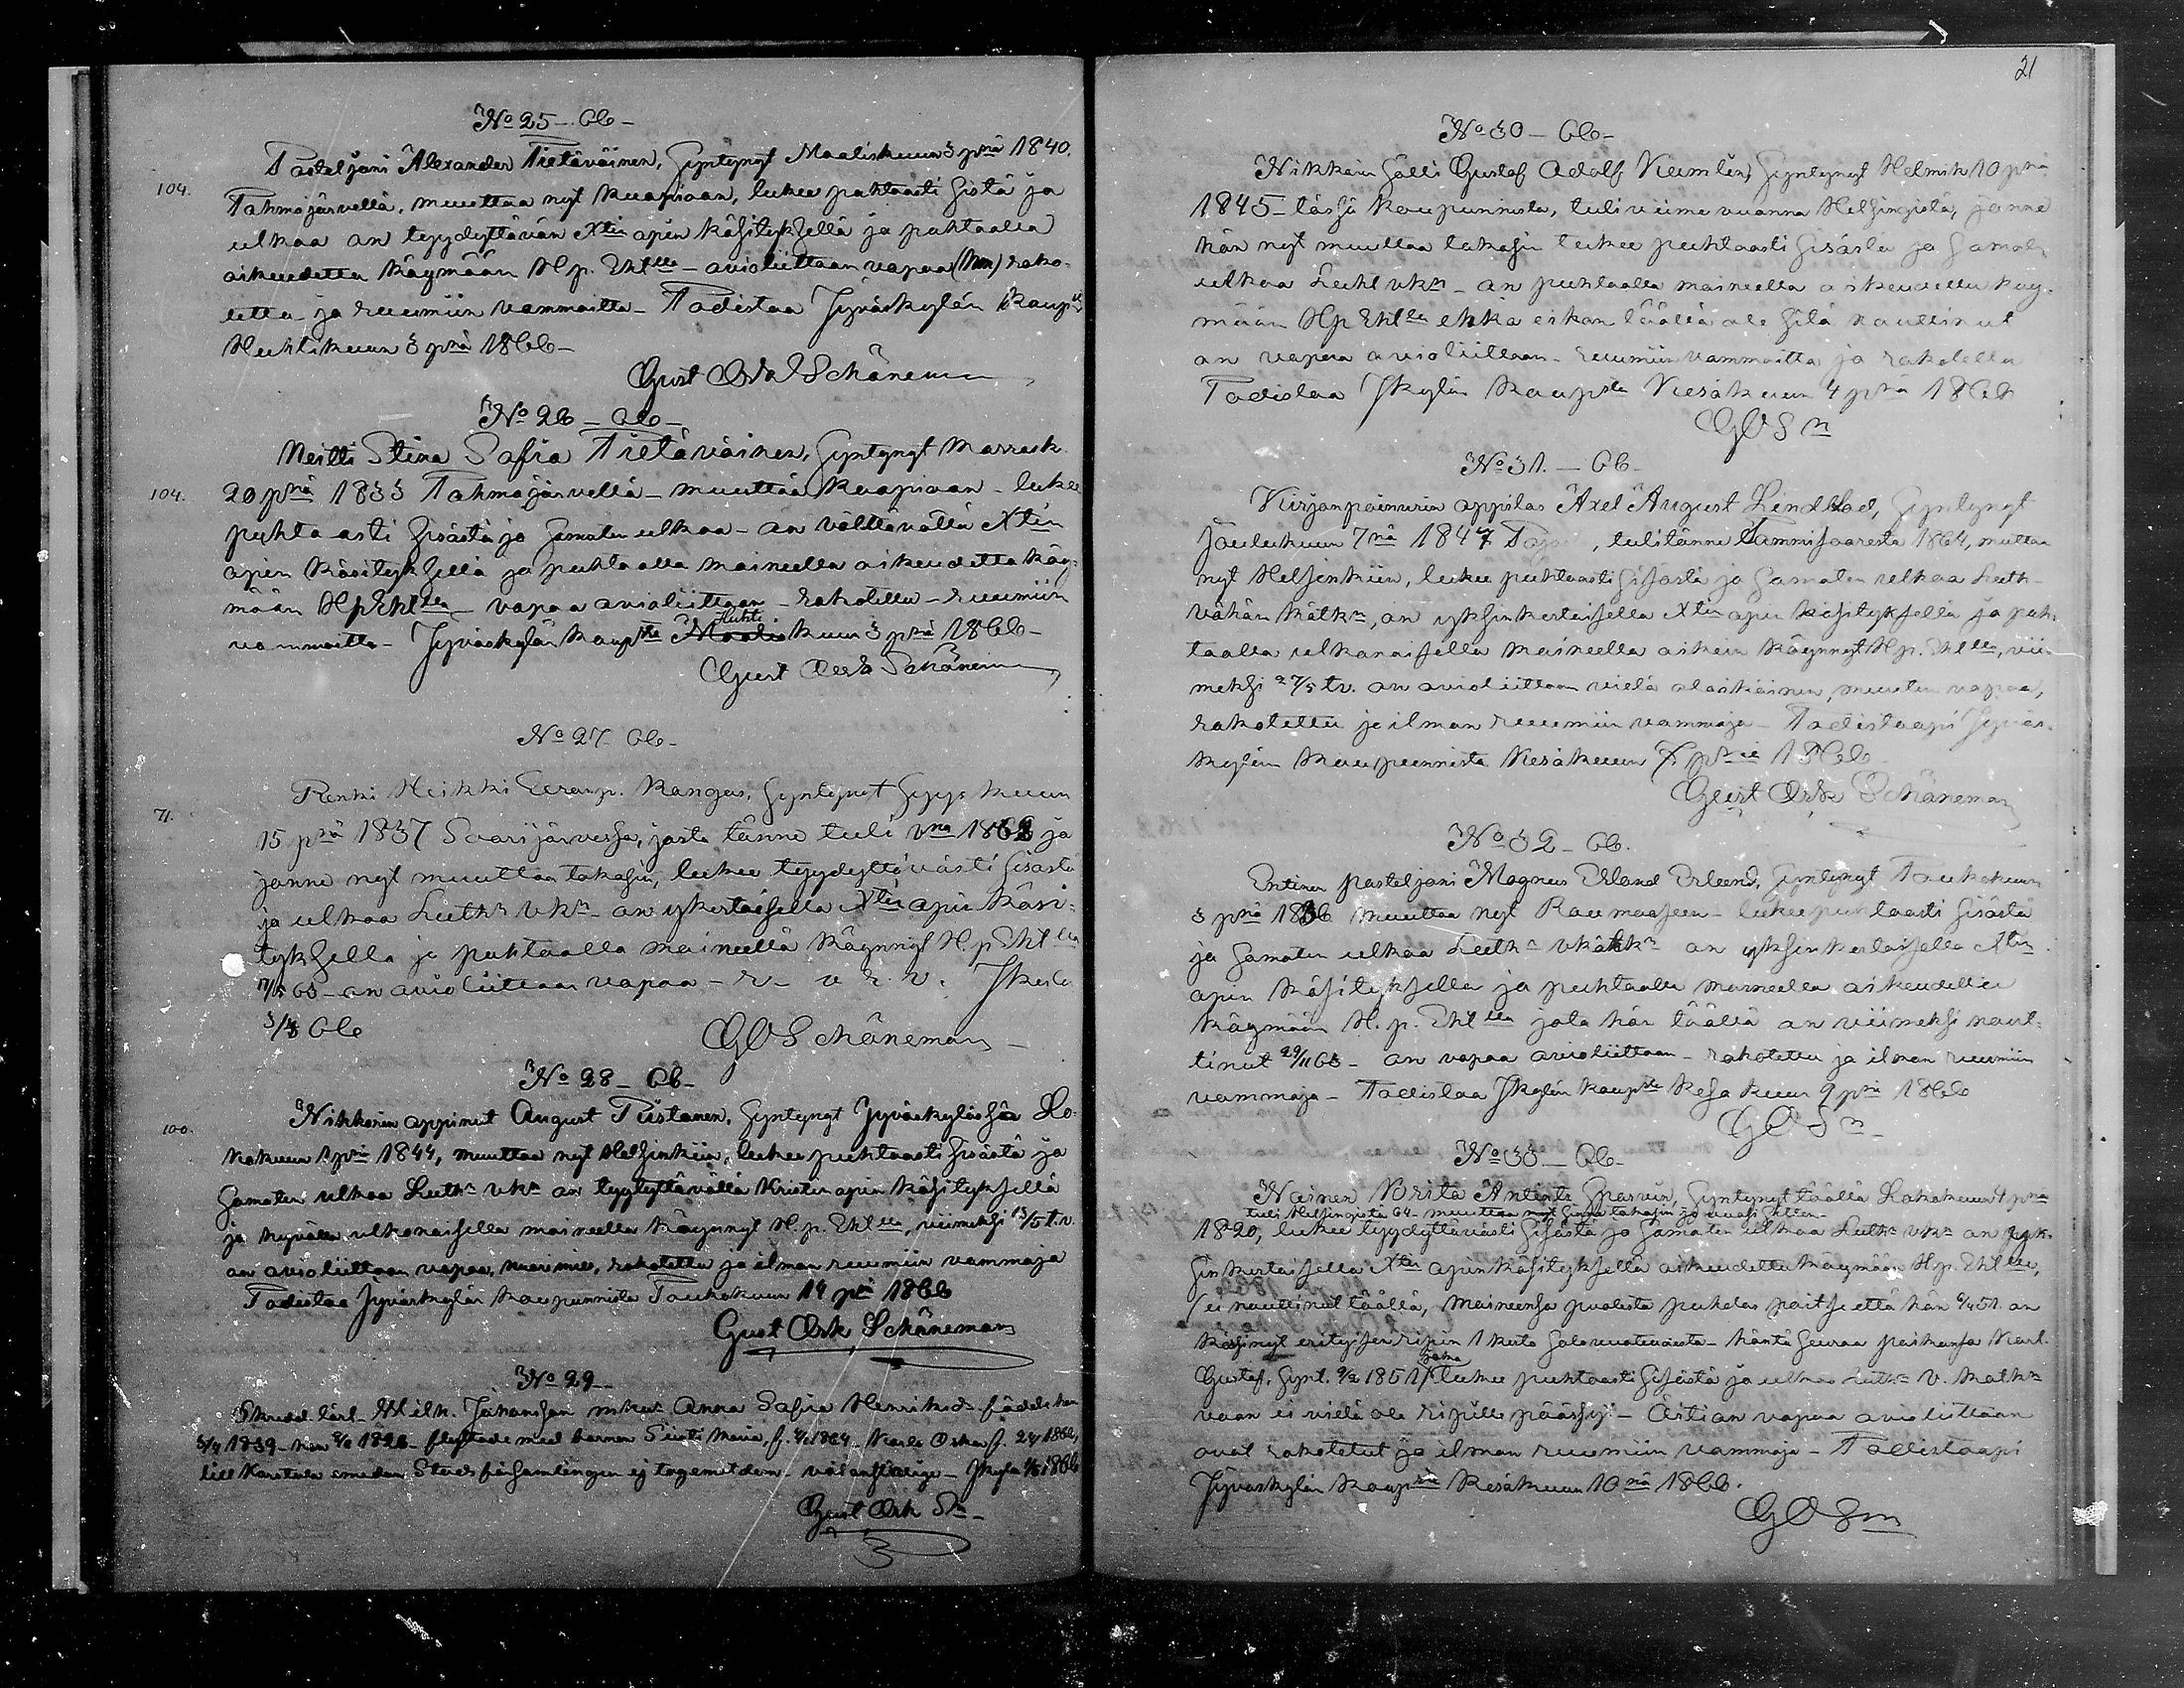 21
No 25 - 66 -
Posteljoni Alexander Tietäväinen, syntynyt Maaliskuun 3 pnä 1840.
104.
Tohmajärvellä, muuttaa nyt Kuopioon, lukee puhtaasti sistä ja
ulkoa on tyydyttävän Xtin opin käsityksellä ja puhtaalla
oikeudetta käymään H. p. Ehtlla - avioliittoon vapaa roko-
tettu ja ruumiin vammoitta - Todistaa Jyväskylän kaup
Huhtikuun 3 pnä 1866 -
Gust Osk Schöneman
No 26 - 66 -
Neitti Stina Sofia Tietäväinen, syntynyt Marrask.
104.
20 pnä 1833 Tohmajärvellä - muuttaa Kuopioon - lukee
puhtaasti sisästä ja samaten ulkoa - on välttävällä Xtin
opin käsityksellä ja puhtaalla maineella oikeudetta käy-
mään H p Ehtlla - vapaa avioliittoon - rokotettu - ruumiin
vammoitta - Jyväskylän kaupsta Huhtikuun 3 pnä 1866 -
Gust Osk Schöneman
No 27 - 66 -
Renki Heikki Kangas, syntynyt Syyskuun
71.
15 pnä 1837 Saarijärvessä, josta tänne tuli vna 1862 ja
jonne nyt muuttaa takasin, lukee tyydyttävästi sisästä
ja ulkoa Luthn vkn - on ykertaisella Xtin opin käsi-
tyksella ja puhtaalla maineella käynnyt H. p Ehtlla
65 - on avioliittoon vapaa - r - v r. v.
3/4 66
G O Schöneman
No 28 - 66 -
Nikkarin oppinut August Piistonen, syntynyt Jyväskylässä Lo-
100.
kakuun 1 pnä 1844, muuttaa nyt Helsinkiin, lukee puhtaasti sisästä ja
samaten ulkoa Luthn vkn on tyytyttävällä Kristin opin käsityksellä
ja hyvällä ulkonaisella maineella käynnyt H. p. Ehtlla, viimeksi 13/5 t. v.
on avioliittoon vapaa, nuori mies, rokotettu ja ilman ruumiin vammoja
Todistaa Jyväskylän kaupunnista Toukokuun 14 pnä 1866
Gust Osk Schöneman
No 29 -
Skredd. lärl. Wilh. Johansson m hu Anna Sofia Henriksdr födde han
1839 - hon 1826 - flyttade med barnen Maria, f. 1864 - Karl Oskar f. 1866,
till Karstula emedan Stadsförsamlingen ej tagemot dem - välanständige - 1866
Gust Osk Sn -
No 30 - 66 -
Nikkarin sälli Gustaf Adolf Kumlin, syntynyt Helmik 10 pnä
1845 - tässä kaupunnista, tuli viime vuonna Helsingistä, jonne
hän nyt muuttaa takasin lukee puhtaasti sisästä ja samat.
ulkoa Luthl vkn - on puhtaalla maineella oikeudettu käy-
mään H p Ehtlla ehkä eikan täällä ole sitä nauttinut
on vapaa avioliittoon - ruumiin vammoitta ja rokotettu
Todistaa Jkylän kaupsta Kesäkuun 4 pnä 1866
G O S n
No 31. - 66 -
Kirjanpainurin oppilas Axel August Lindblad, syntynyt
Joulukuun 7nä 1847 , tuli tänne Tammisaaresta 1864, muttaa
nyt Helsinkiin, lukee puhtaasti sisästä ja samaten ulkoa Luth -
vähän kätkn, on yksinkertaisella Xtin opin käsityksella ja puh-
taalla ulkonaisella maineella oikein käynnyt H. p. Ehtlla, vii-
meksi 27/5 t v. on avioliittoon vielä alaikäinen, muuten vapaa,
rokotettu ja ilman ruumiin vammoja - Todistaapi Jyväs-
kylän kaupunnista Kesäkuun pnä 1866
Gust Osk Schöneman
No 32 - 66.
Entinen posteljoni Magnus Erland Erlund, syntynyt Toukokuun
3 pnä 1836 muuttaa nyt Raumaaseen - lukee puhtaasti sisästä
ja samaten ulkoa Luthn vkätkn on yksinkertaisella Xtin
opin käsityksella ja puhtaalla maineella oikeudettu
käymään H. p. Ehtlla jota hän täällä on viimeksi naut-
tinut 29/11 65 - on vapaa avioliittoon - rokotettu ja ilman ruumiin
vammoja - Todistaa Jkylän kaupsta Kesakuun 9 pnä 1866
G O S n -
No 33 - 66 -
Nainen Brita Antintr , syntynyt täällä Lokakuun 4 pnä
tuli Helsingistä 64 - muuttaa nyt sinne takasin ja sitten -
1820, lukee tyydyttävästi sisästä ja samaten ulkoa Luthn vkn on yk-
sinkertaisella Xtin opinkäsityksellä oikeudettu käymään H. p. Ehtlla,
(ei nauttinut täällä, maineensa puolesta puhdas paitse että hän on
kärsinyt erityisen ripin 1 kerta salavuoteudesta - häntä seuraa poikansa Karl
Gustaf, synt. 1851, joka lukee puhtaasti sisästä ja ulkoa Luthn v. kätkn
vaan ei vielä ole ripille päässyt - Äiti on vapaa avioliittoon
ovat rokotetut ja ilman ruumiin vammoja - Todistaapi
Jyväskylän kaupsta Kesäkuun 10 nä 1866.
G O Sm